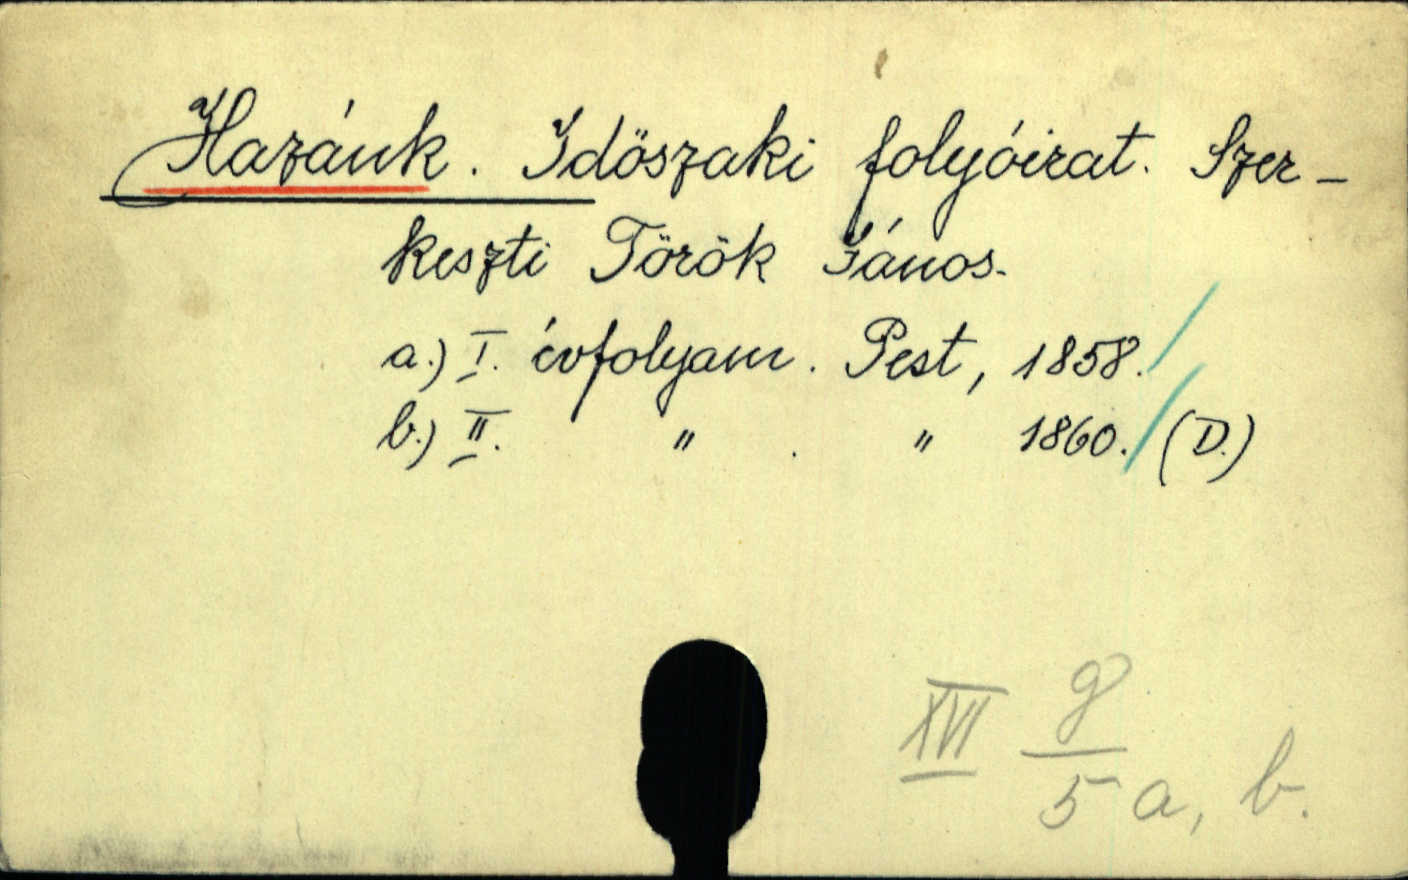 Hazánk. Időszaki folyóirat. Szer-
keszti Török János.
a.) I. évfolyam. Pest, 1858.
b.) II. " . " 1860. (D.)
XVI g
5 a, b.